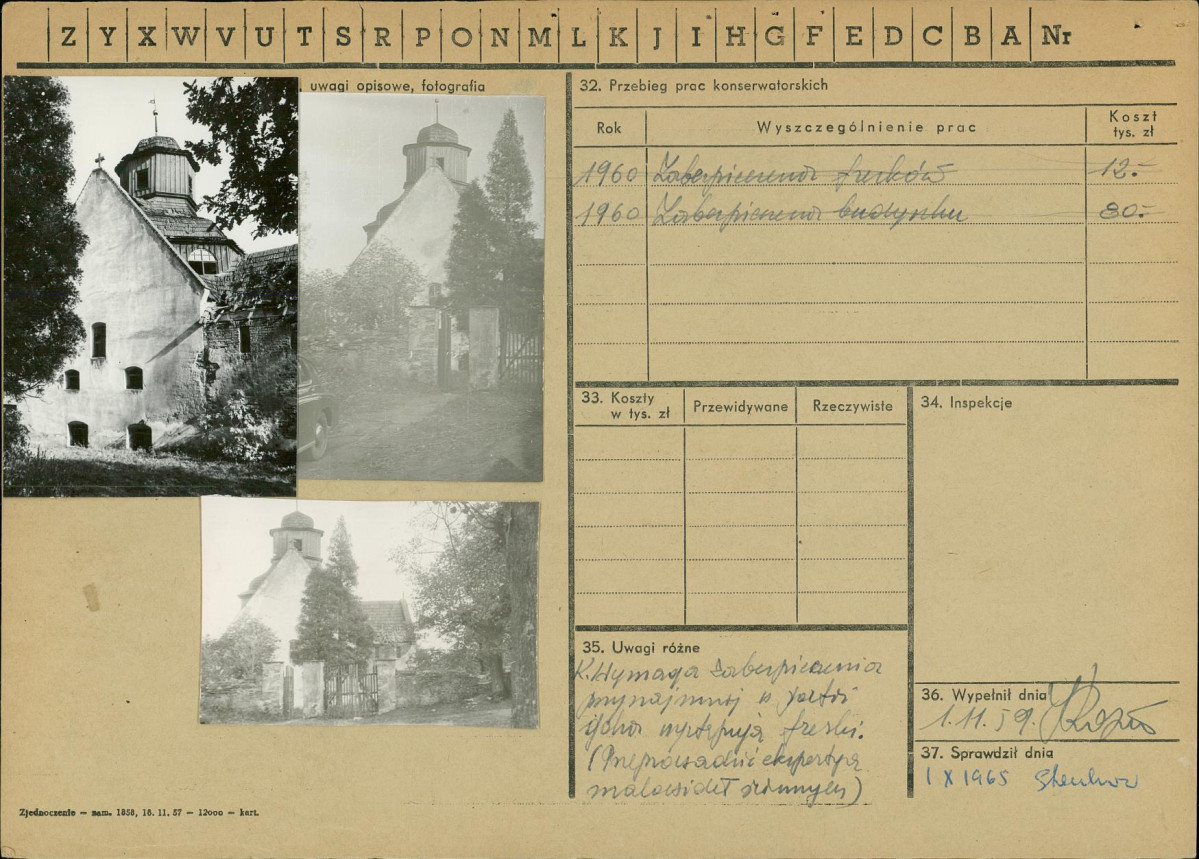 Z Y X W V U T S R P O N M L K J I H G F E D C B A Nr
, uwagi opisowe, fotografia
32. Przebieg prac konserwatorskich
Rok
Wyszczególnienie prac
Koszt
tys. zł
1960 Zabezpieczenia fresków 12.-
1960 Zabezpieczenia budynku 80.-
33. Koszty
w tys. zł
Przewidywane
Rzeczywiste
34. Inspekcje
35. Uwagi różne
K. Wymaga zabezpieczenia
przynajmniej w
występują freski.
(Przeprowadzić ekspertyzę
malowideł ściennych)
36. Wypełnił dnia
1.11.59.
37. Sprawdził dnia
1 X 1965
Zjednoczenie — zam. 1858, 18. 11. 57 — 12000 — kart.